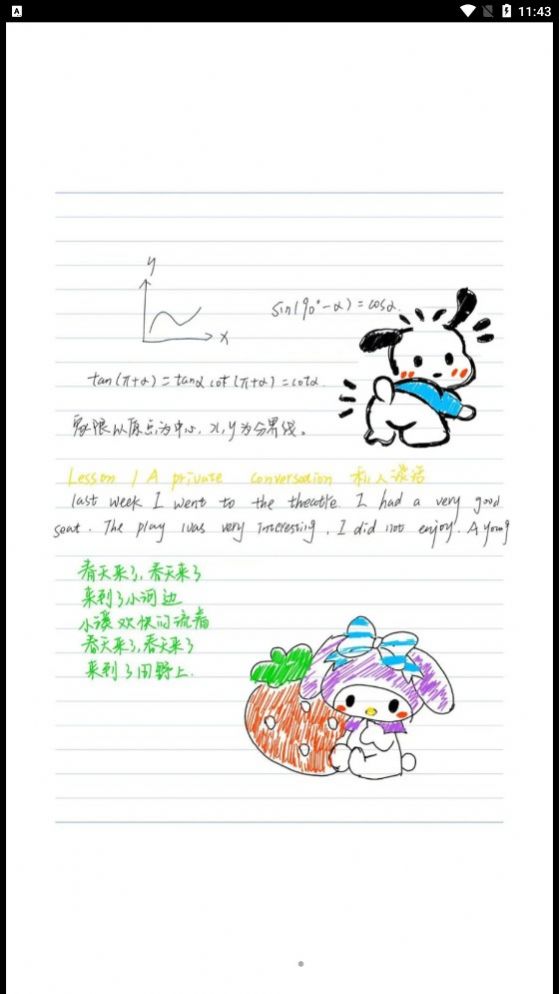 11:43
y
sin(90°-α)=cosα.
x
tan(π+α)=tanα cot(π+α)=cotα.
象限以原点为中心,x,y为分界线。
Lesson 1 A private conversation 私人谈话
last week I went to the theatle. I had a very good
seat. The play was very interesting. I did not enjoy. A young
春天来了,春天来了
来到了小河边
小溪欢快的流着
春天来了,春天来了
来到了田野上.